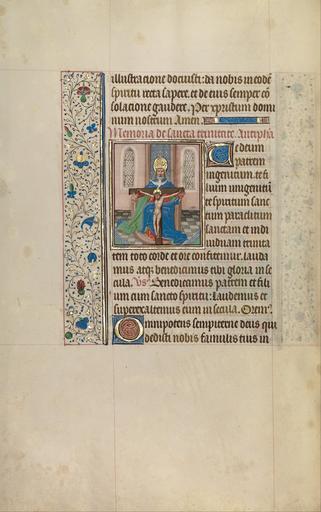 illustracione docuisti: da nobis in eodē
spiritu recta sapere. et de eius semper cō
solacione gaudere. Per xp̄istum domi
num nostrum Amen.
Memoria de sancta trinitate. Antipha
Te deum
patrem
ingenitum. te fi
lium unigenitū
te spiritum sanc
tum paraclitum
sanctam et indi
uiduam trinita
tem toto corde et ore confitemur. lauda
mus atq; benedicimus tibi gloria in se
cula. vs̄ Benedicamus patrem et fili
um cum sancto spiritu: Laudemus et
superexaltemus eum in secula. Orem͛
Omnipotens sempiterne deus qui
dedisti nobis famulis tuis in